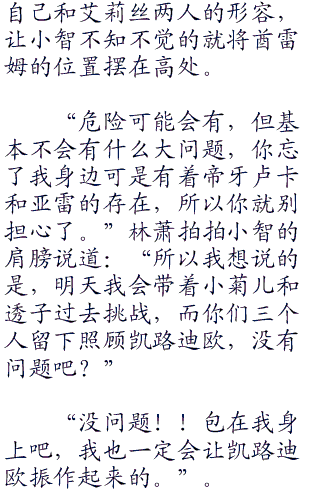 自己和艾莉丝两人的形容，
让小智不知不觉的就将酋雷
姆的位置摆在高处。
“危险可能会有，但基
本不会有什么大问题，你忘
了我身边可是有着帝牙卢卡
和亚雷的存在，所以你就别
担心了。”林萧拍拍小智的
肩膀说道：“所以我想说的
是，明天我会带着小菊儿和
透子过去挑战，而你们三个
人留下照顾凯路迪欧，没有
问题吧？”
“没问题！！包在我身
上吧，我也一定会让凯路迪
欧振作起来的。”。